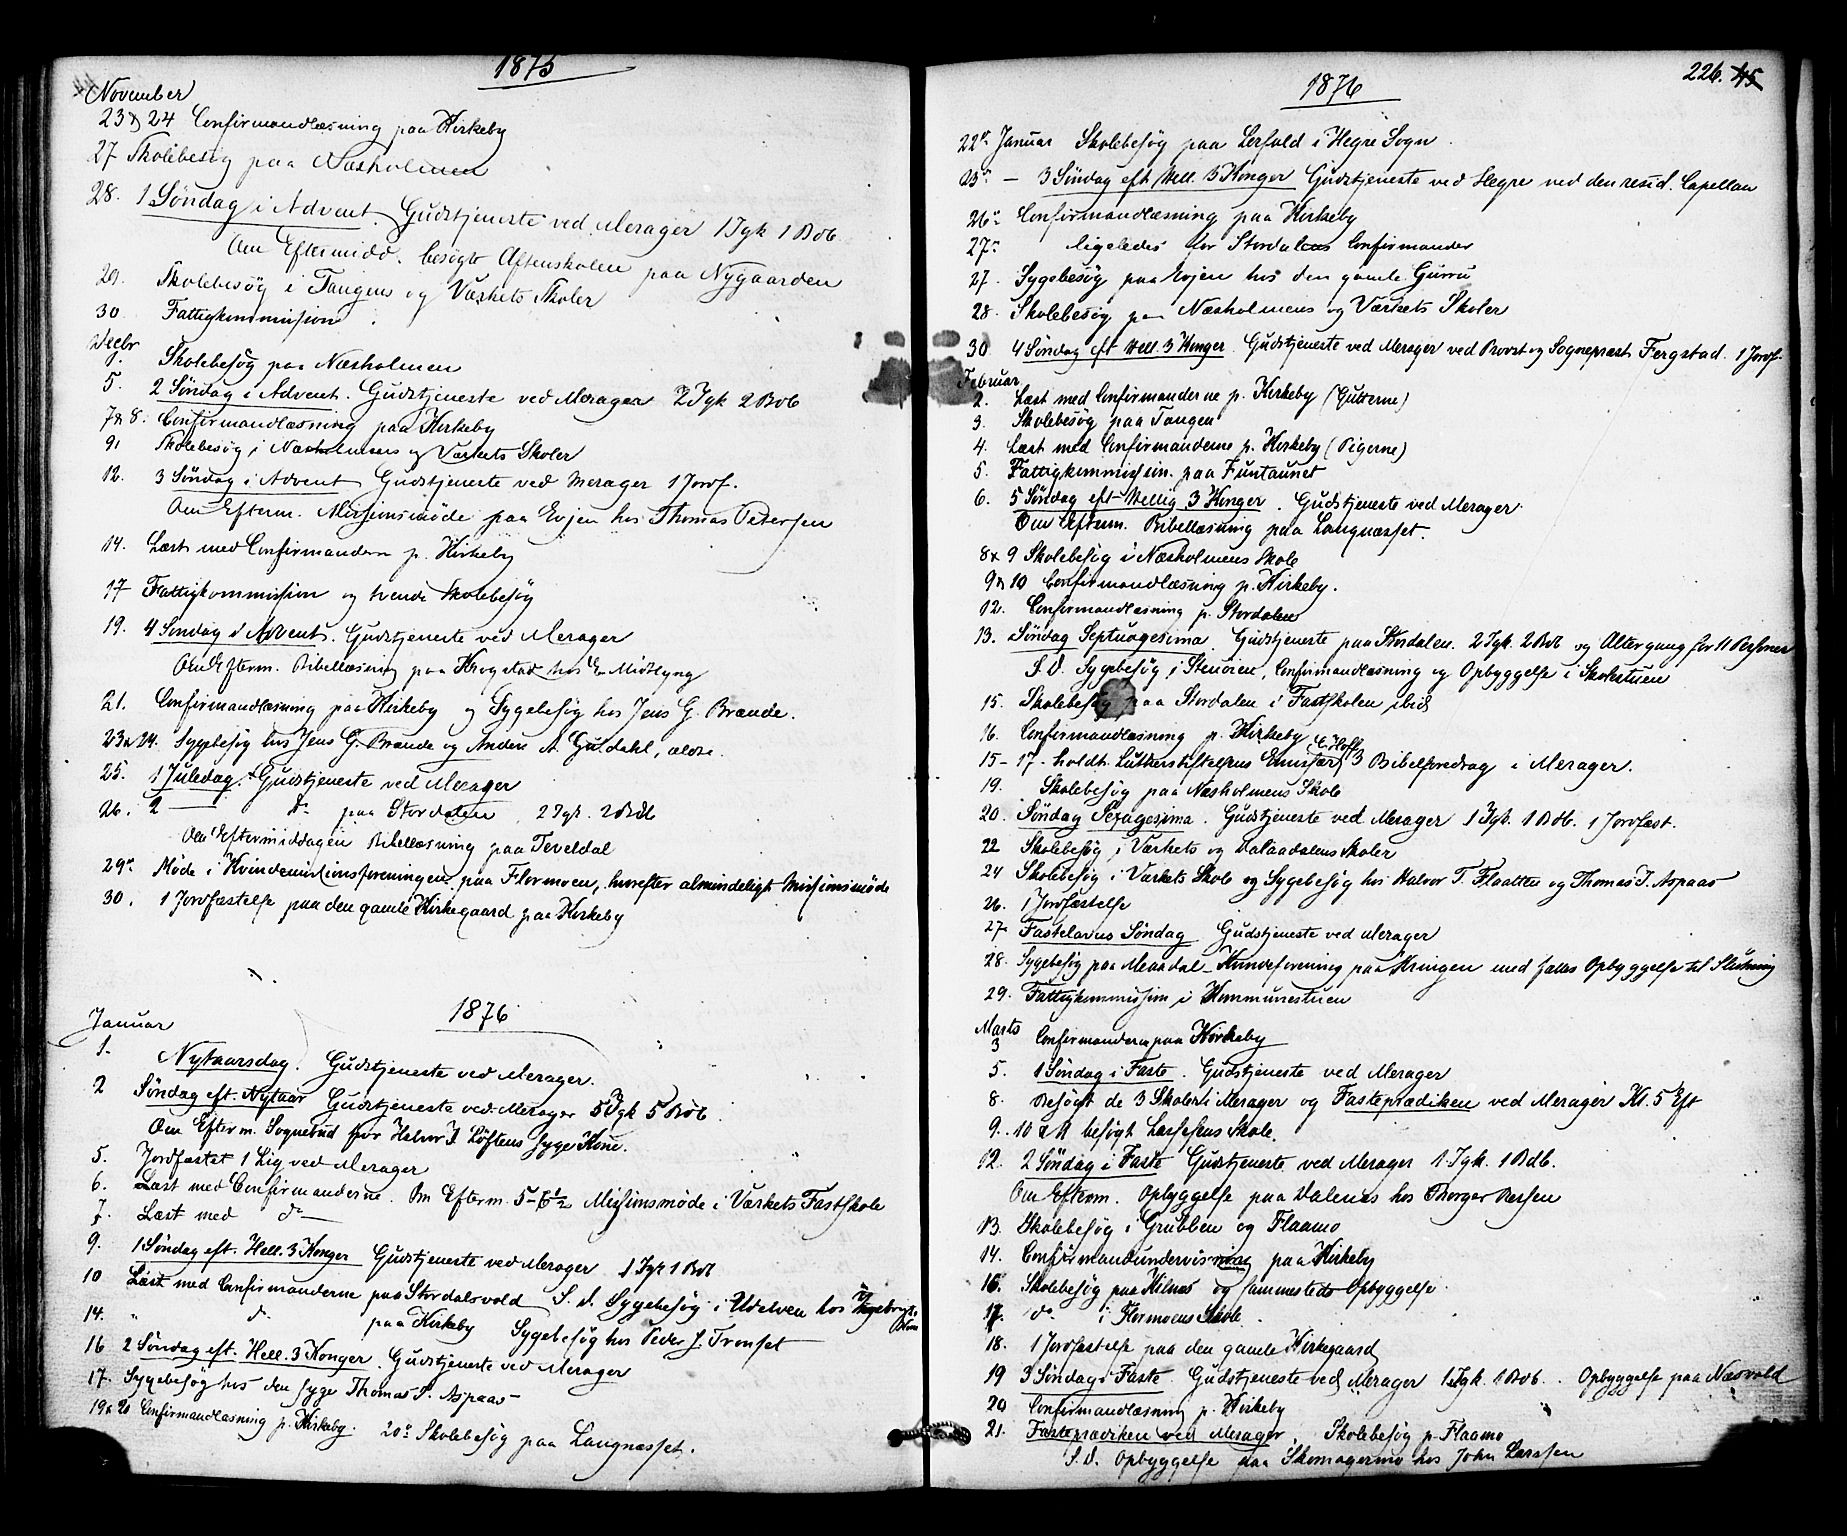 1875
November
23 & 24 Confirmandlæsning paa Kirkeby
27 Skolebesøg paa Næsholmen
28. 1 Søndag i Advent. Gudstjeneste ved Merager 1 Igk 1 Bdb.
Om Eftermidd. besøgt Aftenskolen paa Nygaarden
29. Skolebesøg i Tangens og Værkets Skoler
30 Fattigkommission
Decbr
1. Skolebesøg paa Næsholmen
5. 2 Søndag i Advent. Gudstjeneste ved Merager 2 Igk 2 Bdb
7 & 8. Confirmandlæsning paa Kirkeby
9. Skolebesøg i Næsholmens og Værkets Skoler
12. 3 Søndag i Advent Gudstjeneste ved Merager 1 Jordf.
Om Efterm. Missionsmøde paa Evjen hos Thomas Petersen
14. Læst med Confirmandern p. Kirkeby
17 Fattigkommission og tvende Skolebesøg
19. 4 Søndag i Advent. Gudstjeneste ved Merager
Om Efterm. Bibellæsning paa Krogstad hos E. Midtlyng
21. Confirmandlæsning paa Kirkeby og Sygebesøg hos Jens G. Brænde.
23 & 24. Sygebesøg hos Jens G. Brænde og Anders A. Guldahl, ældre.
25. 1 Juledag. Gudstjeneste ved Merager
26. 2 — do paa Stordalen 2 Igk. 2 Bdb
Om Eftermiddagen Bibellæsning paa Teveldal
29. Møde i Kvindemissionsforeningen paa Flormoen, hvorefter almindeligt Missionsmøde
30. 1 Jordfæstelse paa den gamle Kirkegaard paa Kirkeby
1876
Januar
1. Nytaarsdag. Gudstjeneste ved Merager.
2 Søndag eft. Nytaar Gudstjeneste ved Merager 5 Igk 5 Bdb.
Om Efterm. Sognebud for Halvor J. Løftens syge Kone.
5. Jordfæstet 1 Lig ved Merager
6. Læst med Confirmanderne. Om Efterm. 5-6½ Missionsmøde i Værkets Fastskole
7. Læst med do —
9. 1 Søndag eft. Hell. 3 Konger Gudstjeneste ved Merager 1 Igk 1 Bdb
10 Læst med Confirmanderne paa Stordalsvold S. d. Sygebesøg i Udelven hos
14. " do paa Kirkeby Sygebesøg hos Peder J. Tronset
16 2 Søndag eft. Hell. 3 Konger. Gudstjeneste ved Merager
17. Sygebesøg hos den syge Thomas P. Aspaas
19 & 20 Confirmandlæsning p. Kirkeby. 20. Skolebesøg paa Langnæsset.
226. 45
1876
22. Januar Skolebesøg paa Lerfald i Hegre Sogn.
23. — 3 Søndag eft. Hell. 3 Konger Gudstjeneste ved Hegre ved den resid. Capellan
26. Confirmandlæsning paa Kirkeby
27. ligeledes for Stordalens Confirmander
27. Sygebesøg paa Evjen hos den gamle Gurru
28. Skolebesøg paa Næsholmens og Værkets Skoler
30 4 Søndag eft Hell. 3 Konger. Gudstjeneste ved Merager ved Provst og Sognepræst Fergstad. 1 Jordf.
Februar
2. Læst med Confirmanderne p. Kirkeby (Gutterne)
3. Skolebesøg paa Tangen
4. Læst med Confirmanderne p. Kirkeby (Pigerne)
5. Fattigkommission. paa Funtaunet
6. 5 Søndag eft Hellig 3 Konger. Gudstjeneste ved Merager.
Om Efterm. Bibellæsning paa Langnæsset.
8 & 9 Skolebesøg i Næsholmens Skole
9 & 10 Confirmandlæsning p. Kirkeby.
12. Confirmandlæsning p. Stordalen
13. Søndag Septuagesima. Gudstjeneste paa Stordalen. 2 Igk. 2 Bdb og Altergang for 11 Personer
S. D. Sygebesøg i Stenøien, Confirmandlæsning og Opbyggelse i Skolestuen
15. Skolebesøg paa Stordalen i Fastskolen ibid
16. Confirmandlæsning p. Kirkeby
15-17. holdt Lutherstiftelsens Emissær 3 Bibelforedrag i Merager.
19. Skolebesøg paa Næsholmens Skole
20. Søndag Sexagesima. Gudstjeneste ved Merager 1 Igk. 1 Bdb. 1 Jordfæst.
22 Skolebesøg i Værkets og Dalaadalens Skoler
24 Skolebesøg i Værkets Skole og Sygebesøg hos Halvor T. Flaatten og Thomas P. Aspaas
26. 1 Jordfæstelse
27. Fastelavns Søndag Gudstjeneste ved Merager
28. Sygebesøg paa Meaadal - Kvindeforening paa Kringen med fælles Opbyggelse til Slutning
29. Fattigkommission i Kommunestuen
Marts
3 Confirmandern paa Kirkeby
5. 1 Søndag i Faste. Gudstjeneste ved Merager
8. Besøgt de 3 Skoler i Merager og Fasteprædiken ved Merager Kl. 5 Eft
9. 10 & 11 besøgt Lassesens Skole.
12. 2 Søndag i Faste Gudstjeneste ved Merager 1 Igk. 1 Bdb.
Om Efterm. Opbyggelse paa Dalenes hos Thorger Bersen
13. Skolebesøg i Grubben og Flaamo
14. Confirmandundervisning paa Kirkeby
16. Skolebesøg paa Kilnes og sammesteds Opbyggelse.
17. do i Flormoens Skole.
18. 1 Jordfæstelse paa den gamle Kirkegaard
19 3 Søndag i Faste. Gudstjeneste ved Merager 1 Igk. 1 Bdb. Opbyggelse paa Næsvold
20 Confirmandlæsning p. Kirkeby
21. Fasteprædiken ved Merager. Skolebesøg p. Flaamo
S. D. Opbyggelse paa Skomagermo hos John Larssen